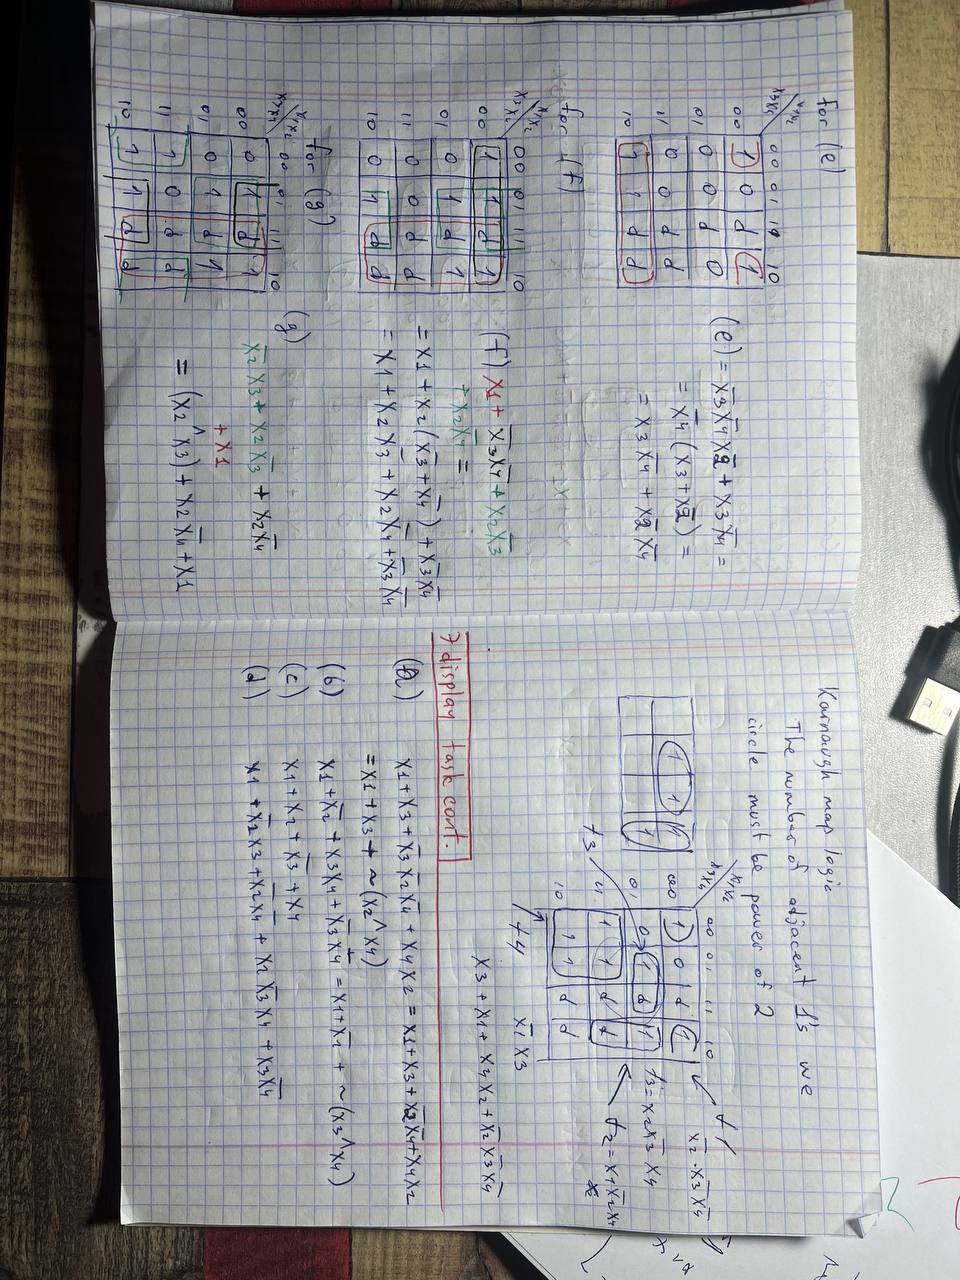 for (e)
x3x4 \ x1x2 00 01 11 10
00 1 0 d 1
01 0 0 d 0
11 0 0 d d
10 1 1 d d
(e) = x̄3x̄4x̄2 + x3x̄4 =
= x̄4(x3+x̄2) =
= x3x̄4 + x̄2x̄4
for (f)
x3x4 \ x1x2 00 01 11 10
00 1 1 d 1
01 0 1 d 1
11 0 0 d d
10 0 1 d d
(f) x1 + x̄3x̄4 + x2x̄3
+ x2x̄4 =
= x1 + x2(x̄3+x̄4) + x̄3x̄4
= x1 + x2x̄3 + x2x̄4 + x̄3x̄4
for (g)
x3x4 \ x1x2 00 01 11 10
00 0 1 d 1
01 0 1 d 1
11 1 0 d d
10 1 1 d d
(g)
x̄2x3 + x2x̄3 + x2x̄4
+ x1
= (x2^x3) + x2x̄4 + x1
Karnaugh map logic
The number of adjacent 1's we
circle must be power of 2
1 1 1
1
x3x4 \ x1x2 00 01 11 10
00 1 0 d 1
01 0 1 d 1
11 1 1 d d
10 1 1 d d
f1
x̄2·x̄3x̄4
f3
f3 = x2x̄3x4
f2 = x1x̄2x4
f4
x̄1x3
x3 + x1 + x4x2 + x̄2x̄3x̄4
7 display task cont.
(a) x1 + x3 + x̄3x̄2x̄4 + x4x2 = x1 + x3 + x̄2x̄4 + x4x2
= x1 + x3 + ~(x2^x4)
(b) x1 + x̄2 + x3x4 + x̄3x̄4 = x1 + x̄2 + ~(x3^x4)
(c) x1 + x2 + x̄3 + x4
(d) x1 + x̄2x3 + x̄2x̄4 + x2x̄3x4 + x3x̄4